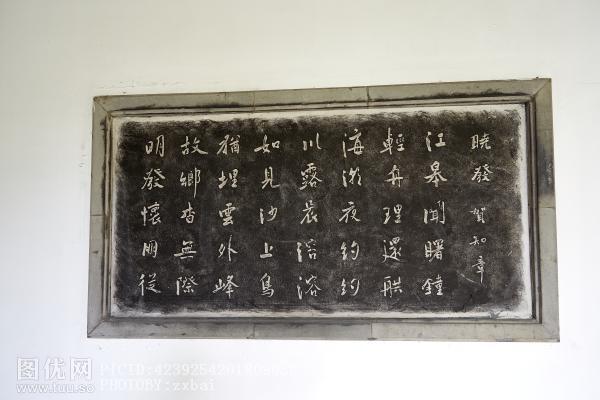 暁發 賀知章
江皋聞曙鐘
輕舟理還舼
海潮夜約約
川露晨溶溶
如見沙上鳥
猶埋雲外峰
故鄉杳無際
明發懷朋從
图优网
www.tuu.so
PHOTOBY:zxbai